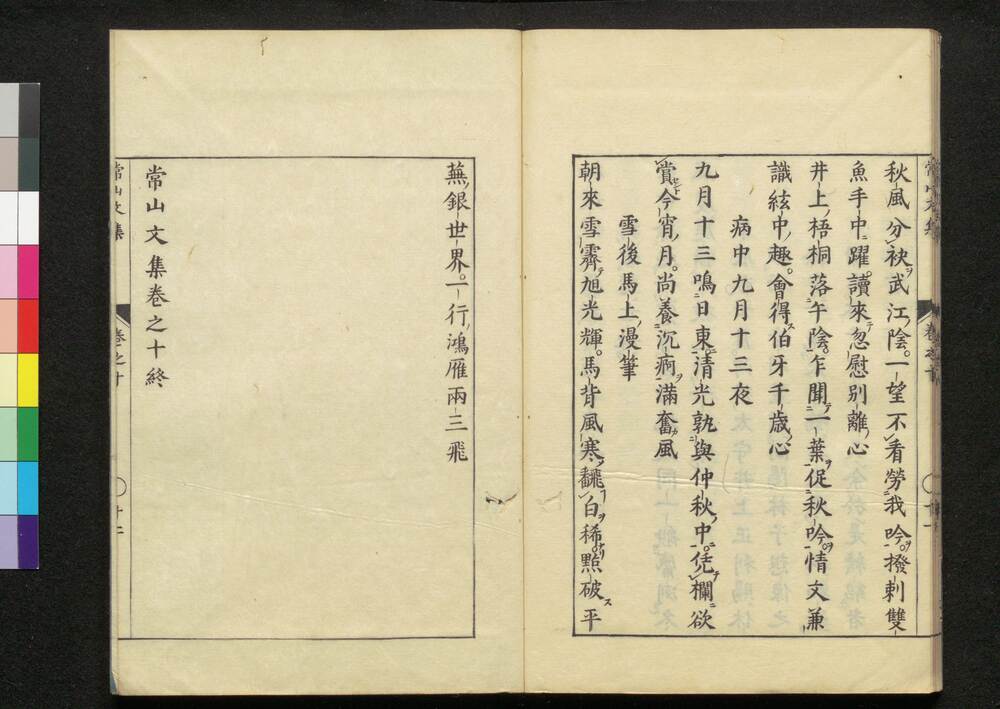 秋風分袂武江陰一望不看勞我吟撥剌雙
魚手中躍讀來忽慰別離心
井上梧桐落午陰乍聞一葉促秋吟情文兼
識絃中趣會得伯牙千歳心
病中九月十三夜
九月十三鳴日東清光孰與仲秋中凭欄欲
賞今宵月尚養沉痾滿奮風
雪後馬上漫筆
朝來雪霽旭光輝馬背風寒翻白稀點破平
蕪銀世界一行鴻雁兩三飛
常山文集卷之十終
常山文集
卷之十